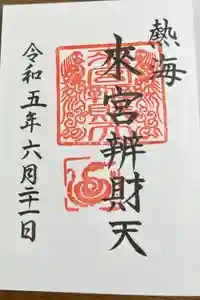 熱海
來宮辨財天
令和五年六月二十一日